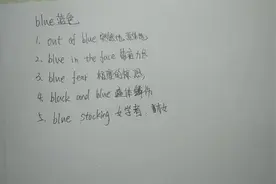 blue 蓝色
1. out of blue 突然地,
2. blue in the face
3. blue fear 极度的惊恐
4. black and blue 遍体鳞伤
5. blue stocking 女学者,